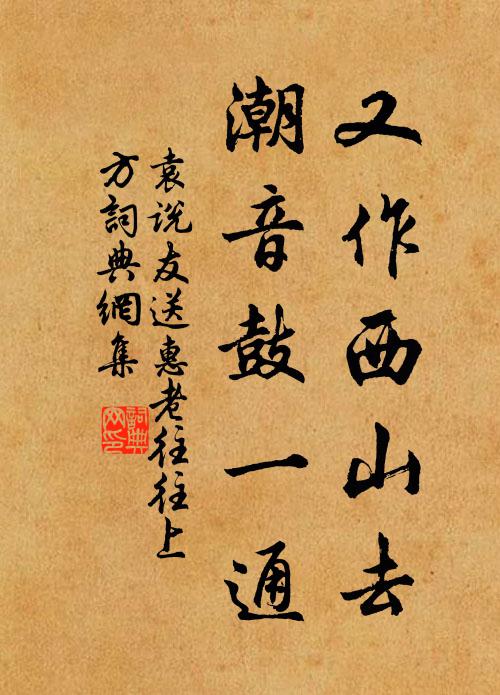 又作西山去
潮音鼓一通
袁说友送惠老往往上
方詞典網集
詞典
网印